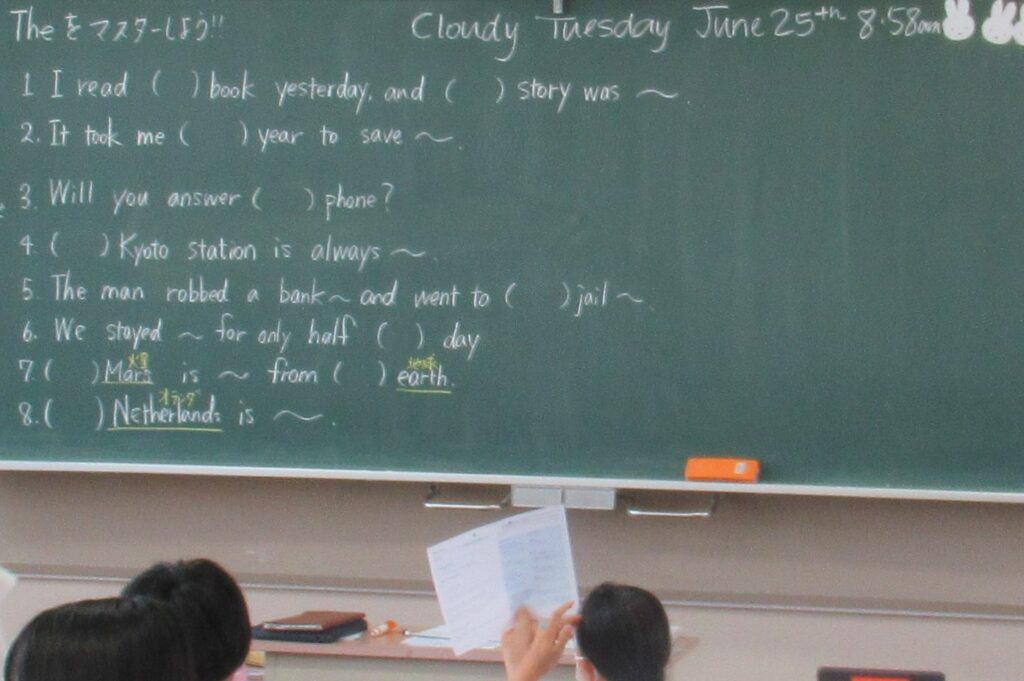 Theをマスターしよう!!
Cloudy Tuesday June 25th 8:58am
1 I read ( ) book yesterday, and ( ) story was ～.
2. It took me ( ) year to save ～.
3. Will you answer ( ) phone?
4 ( ) Kyoto station is always ～.
5 The man robbed a bank～ and went to ( ) jail ～.
6. We stayed ～ for only half ( ) day
火星 地球
7. ( ) Mars is ～ from ( ) earth.
オランダ
8. ( ) Netherlands is ～.